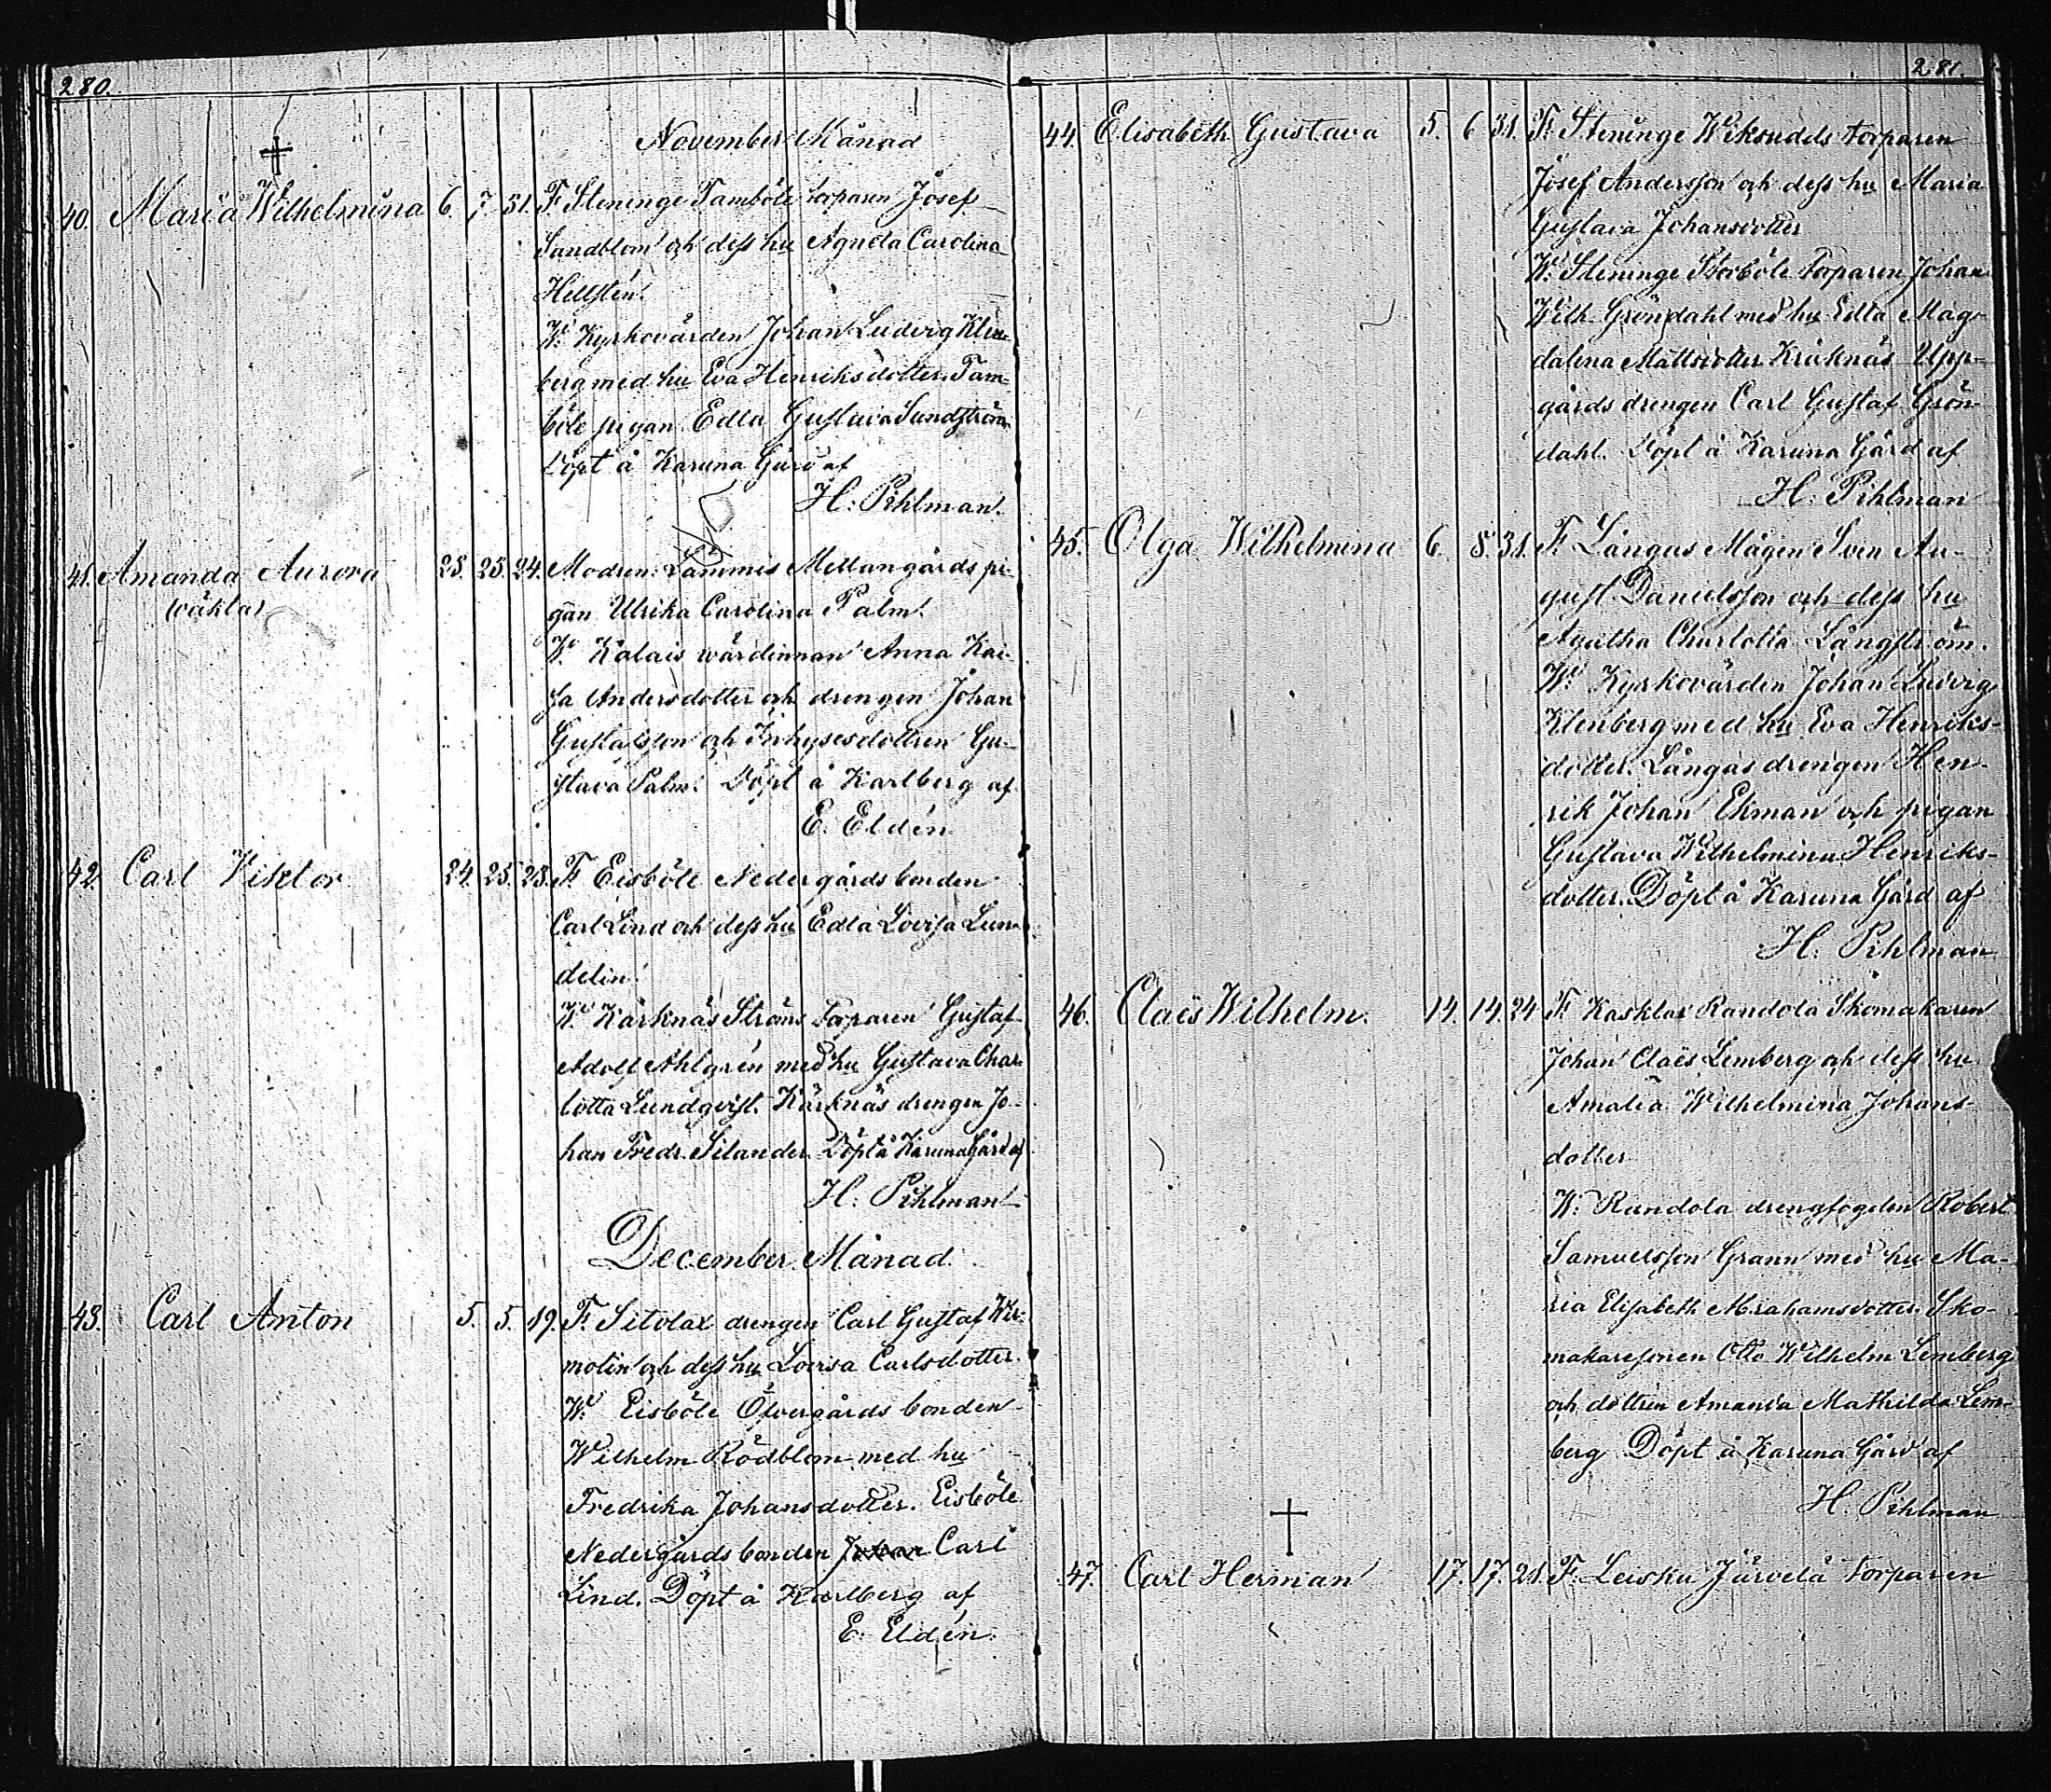 280.
November Månad
40. Maria Wilhelmina 6. 7. 31. F. Steninge Tamböle torparen Josef
Sandblom och dess hu Agneta Carolina
Hellstén.
W. Kyrkovärden Johan Ludvig Klen-
berg med hu Eva Henriksdotter. Tam-
böle pigan Edla Gustava Sundström
Döpt å Karuna Gård af
H. Pihlman.
41. Amanda Aurora 25. 25. 24. Modren: Lammis Mellangårds pi-
(oäkta)
gan Ulrika Carolina Palm.
W. Kalais wärdinnan Anna Kai-
sa Andersdotter och drengen Johan
Gustafsson och Inhysesdottren Gu-
stava Palm. Döpt å Karlberg af
E. Eldén
42. Carl Viktor 24. 25. 23. F. Eisböle Nedergårds bonden
Carl Lind och dess hu Edla Lovisa Lun-
delin.
W. Kärknäs Ströms Torparen Gustaf
Adolf Ahlgrén med hu Gustava Char-
lotta Lundqvist. Kärknäs drengen Jo-
han Fredr. Silander. Döpt å Karuna Gård af
H. Pihlman
December Månad
43. Carl Anton 5. 5. 19. F. Sitolax drengen Carl Gustaf Wir-
molin och dess hu Lovisa Carlsdotter.
W. Eisböle Öfvergårds bonden
Wilhelm Rödblom med hu
Fredrika Johansdotter. Eisböle
Nedergårds bonden Johan Carl
Lind. Döpt å Karlberg af
E. Eldén.
281.
44. Elisabeth Gustava 5. 6 31. F. Steninge Wiksudds torparen
Josef Andersson och dess hu Maria
Gustava Johansdotter
W. Steninge Storböle torparen Johan
Wilh. Gröndahl med hu Edla Mag-
dalena Mattsdotter Kräknäs Upp-
gårds drengen Carl Gustaf Grön-
dahl. Döpt å Karuna Gård af
H. Pihlman
45. Olga Wilhelmina 6. 8. 31. F. Långas Mågen Sven Au-
gust Danielsson och dess hu
Agatha Charlotta Långström.
W. Kyrkovärden Johan Ludvig
Klenberg med hu Eva Henriks-
dotter. Långas drengen Hen-
rik Johan Ekman och pigan
Gustava Wilhelmina Henriks-
dotter. Döpt å Karuna Gård af
H. Pihlman
46. Claës Wilhelm. 14. 14. 24 F. Kasklax Randola Skomakaren
Johan Claës Lemberg och dess hu
Amalia Wilhelmina Johans-
dotter
W. Randola drengfogden Robert
Samuelsson Grann med hu Ma-
ria Elisabeth Abrahamsdotter. Sko-
makaresonen Otto Wilhelm Lemberg
och dottren Amanda Mathilda Lem-
berg Döpt å Karuna Gård af
H. Pihlman
47. Carl Herman 17. 17. 21. F. Leisku Järvelä torparen